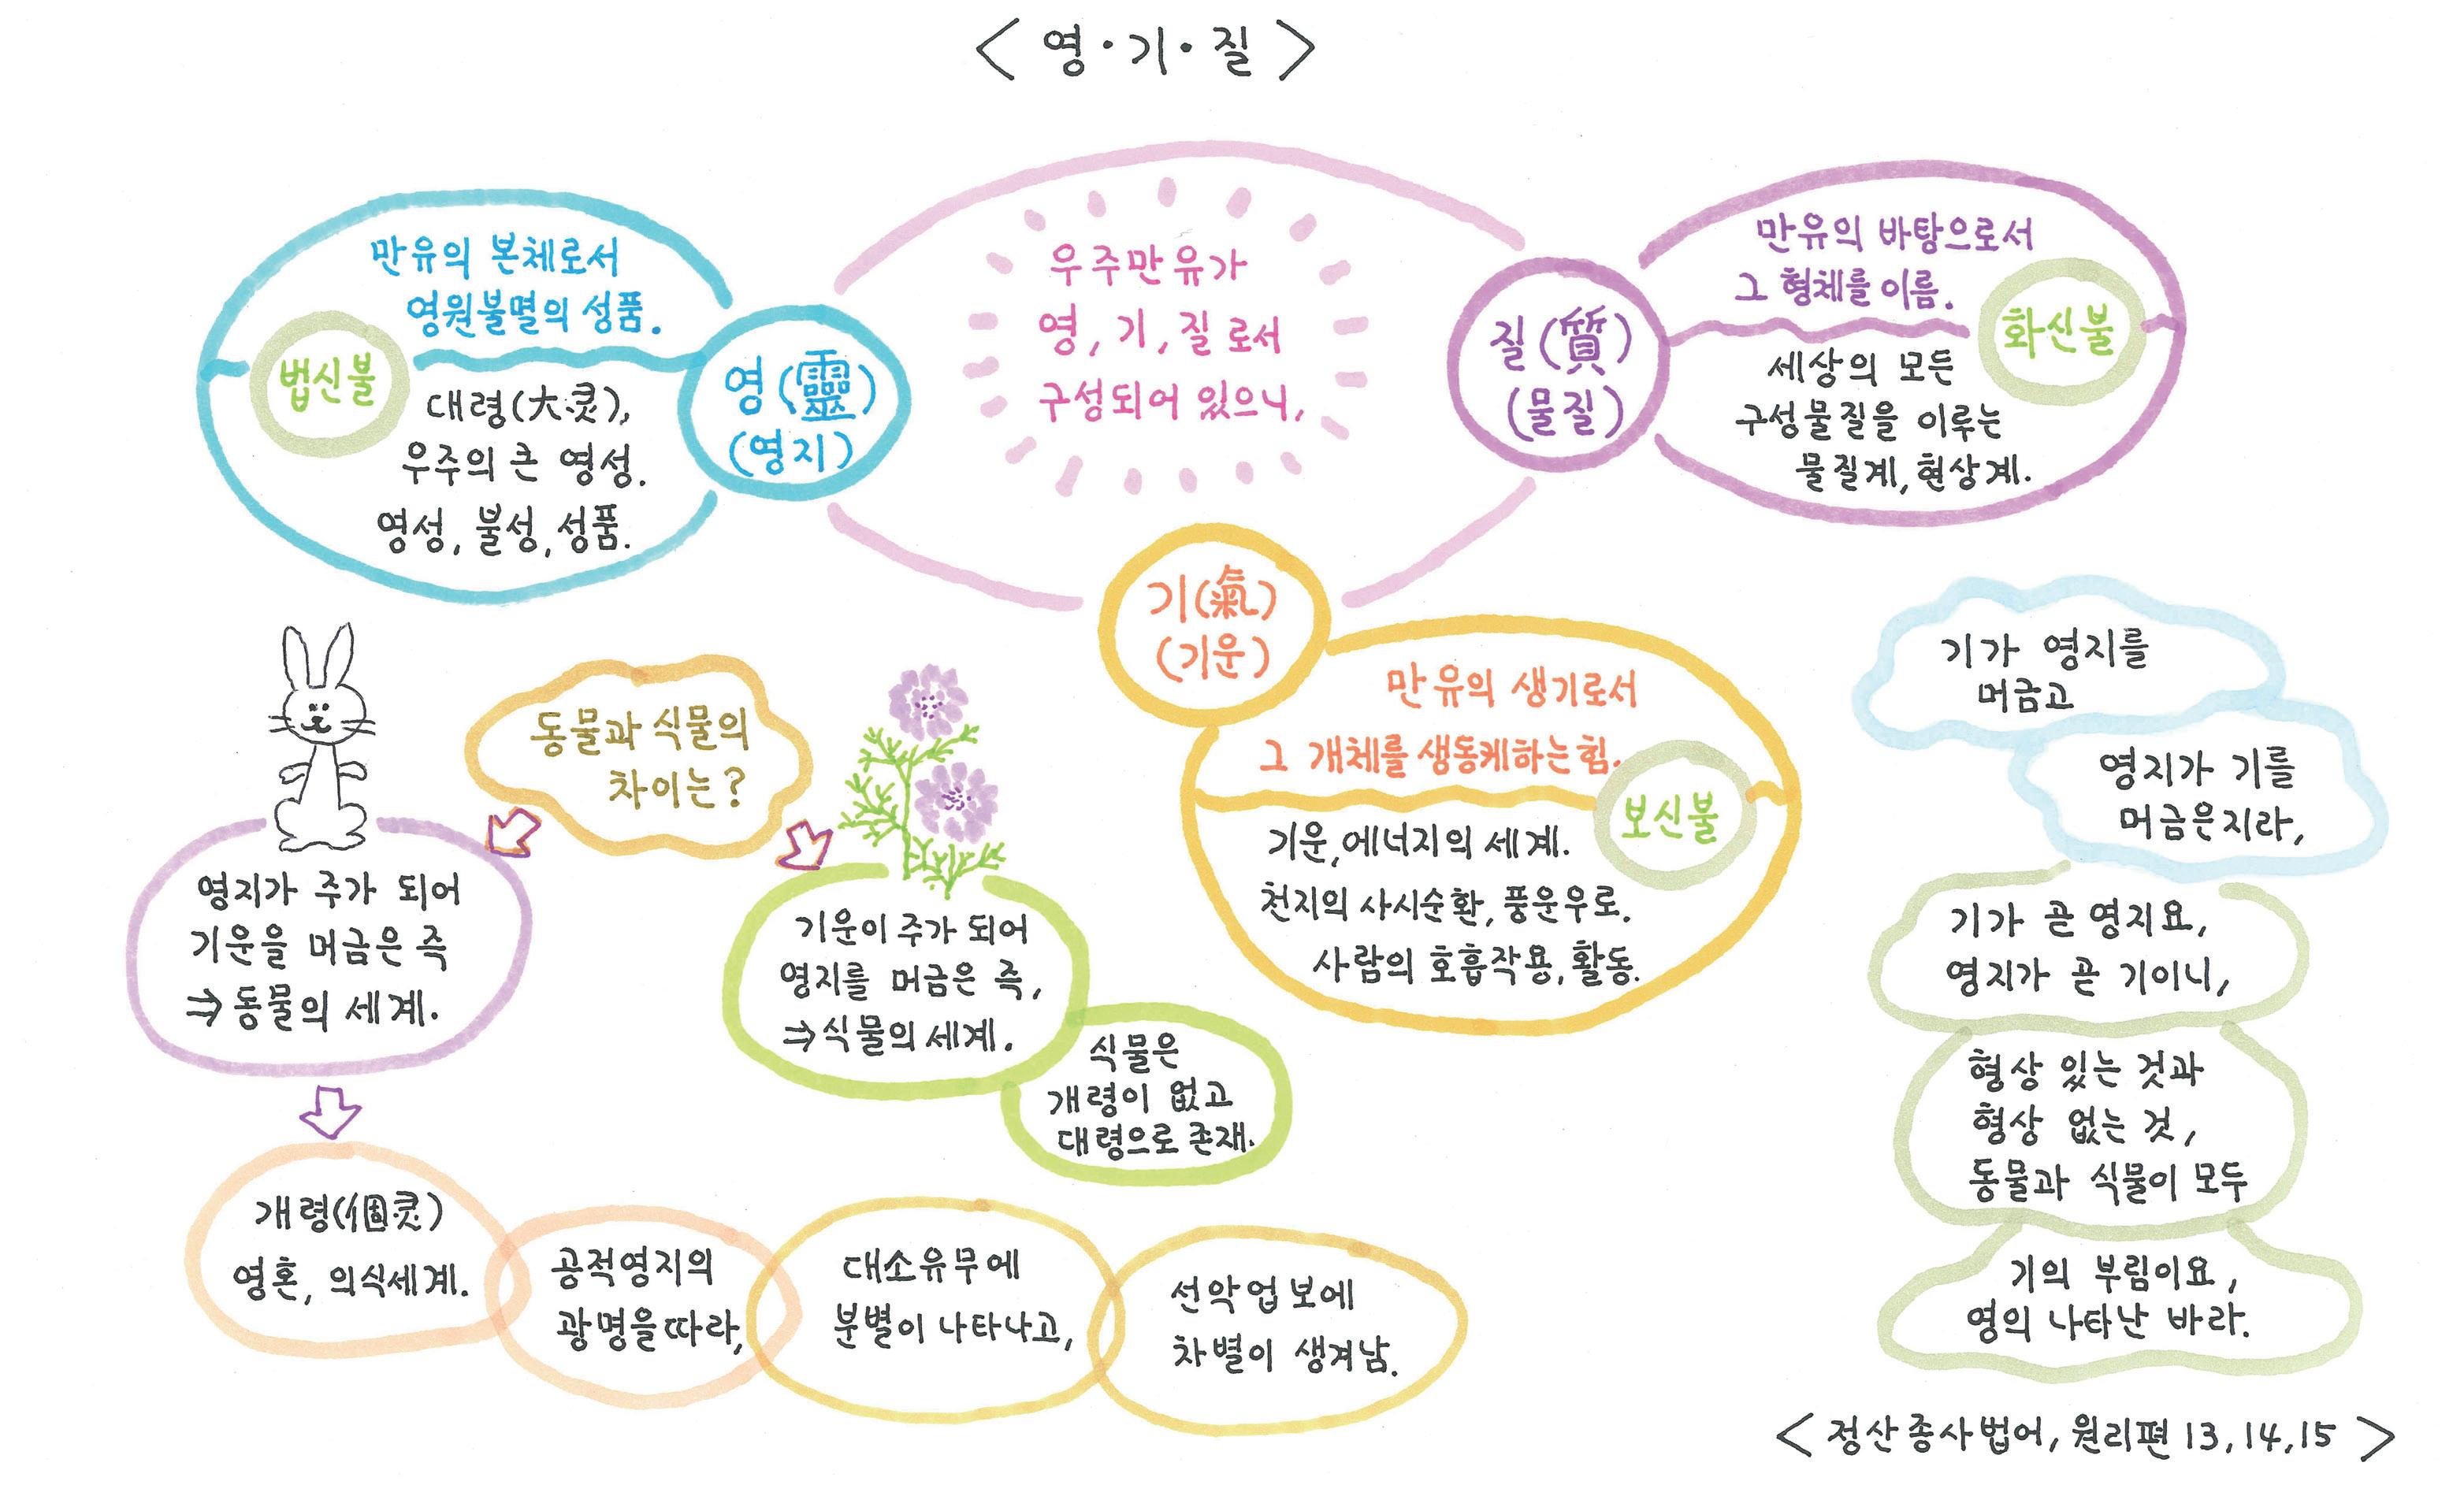 < 영·기·질 >
만유의 본체로서
영원불멸의 성품.
법신불
대령(大灵),
우주의 큰 영성.
영성, 불성, 성품.
영(靈)
(영지)
우주만유가
영, 기, 질로서
구성되어 있으니,
질(質)
(물질)
만유의 바탕으로서
그 형체를 이름.
화신불
세상의 모든
구성물질을 이루는
물질계, 현상계.
기(氣)
(기운)
만유의 생기로서
그 개체를 생동케하는 힘.
보신불
기운, 에너지의 세계.
천지의 사시순환, 풍운우로.
사람의 호흡작용, 활동.
동물과 식물의
차이는?
영지가 주가 되어
기운을 머금은 즉
⇒동물의 세계.
기운이 주가 되어
영지를 머금은 즉,
⇒식물의 세계.
식물은
개령이 없고
대령으로 존재.
개령(個灵)
영혼, 의식세계.
공적영지의
광명을 따라,
대소유무에
분별이 나타나고,
선악업보에
차별이 생겨남.
기가 영지를
머금고
영지가 기를
머금은지라,
기가 곧 영지요,
영지가 곧 기이니,
형상 있는 것과
형상 없는 것,
동물과 식물이 모두
기의 부림이요,
영의 나타난 바라.
< 정산종사법어, 원리편 13, 14, 15 >